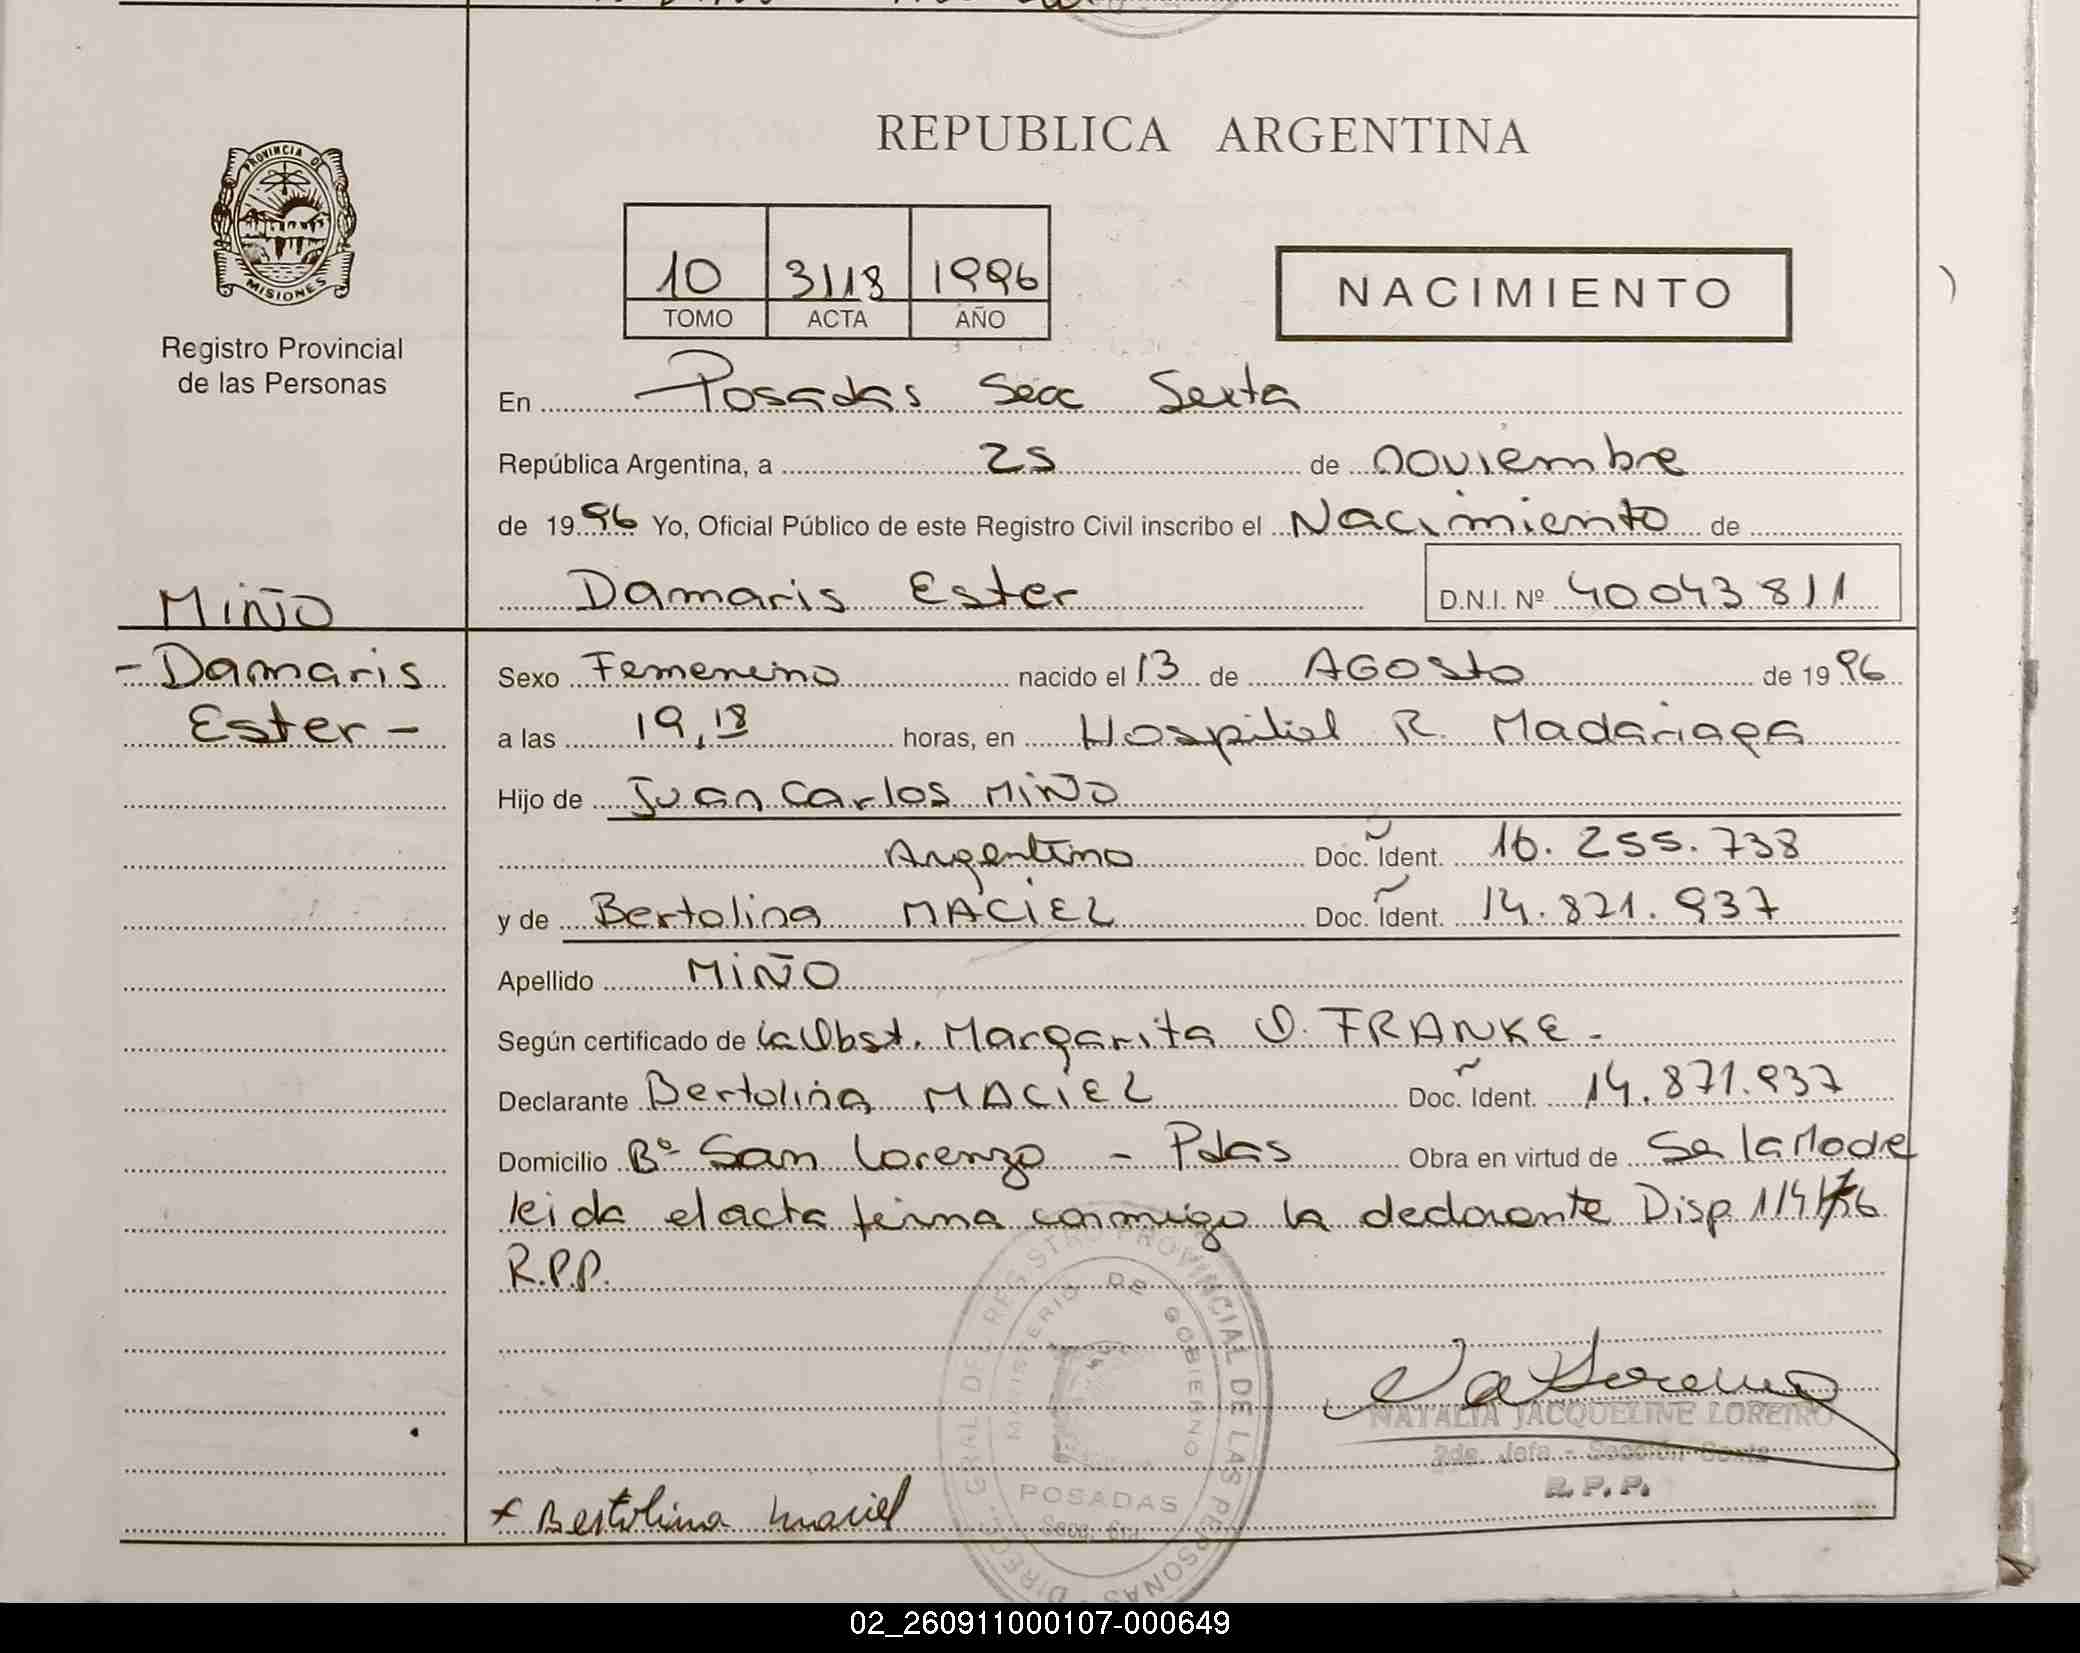 REPUBLICA ARGENTINA
PROVINCIA DE
MISIONES
Registro Provincial
de las Personas
10 3118 1996
TOMO ACTA AÑO
NACIMIENTO
En Posadas Secc Sexta
República Argentina, a 25 de noviembre
de 1996 Yo, Oficial Público de este Registro Civil inscribo el Nacimiento de
Damaris Ester D.N.I. Nº 40043811
MIÑO
- Damaris
Ester -
Sexo Femenino nacido el 13 de AGOSto de 1996
a las 19,18 horas, en Hospital R. Madariaga
Hijo de Juan Carlos MIÑO
Argentino Doc. Ident. 16.255.738
y de Bertolina MACIEL Doc. Ident. 14.871.937
Apellido MIÑO
Según certificado de la Obst. Margarita O. FRANKE -
Declarante Bertolina MACIEL Doc. Ident. 14.871.937
Domicilio Bº San Lorenzo - Pdas Obra en virtud de Se la Made
leida el acta firma conmigo la declarante Disp 114/76
R.P.P.
DIREC. GRAL DEL REGISTRO PROVINCIAL DE LAS PERSONAS
MINISTERIO DE GOBIERNO
POSADAS
Secc. 6ta.
NATALIA JACQUELINE LOREIRO
2da. Jefa - Sección Sexta
R. P. P.
x Bertolina Maciel
02_260911000107-000649